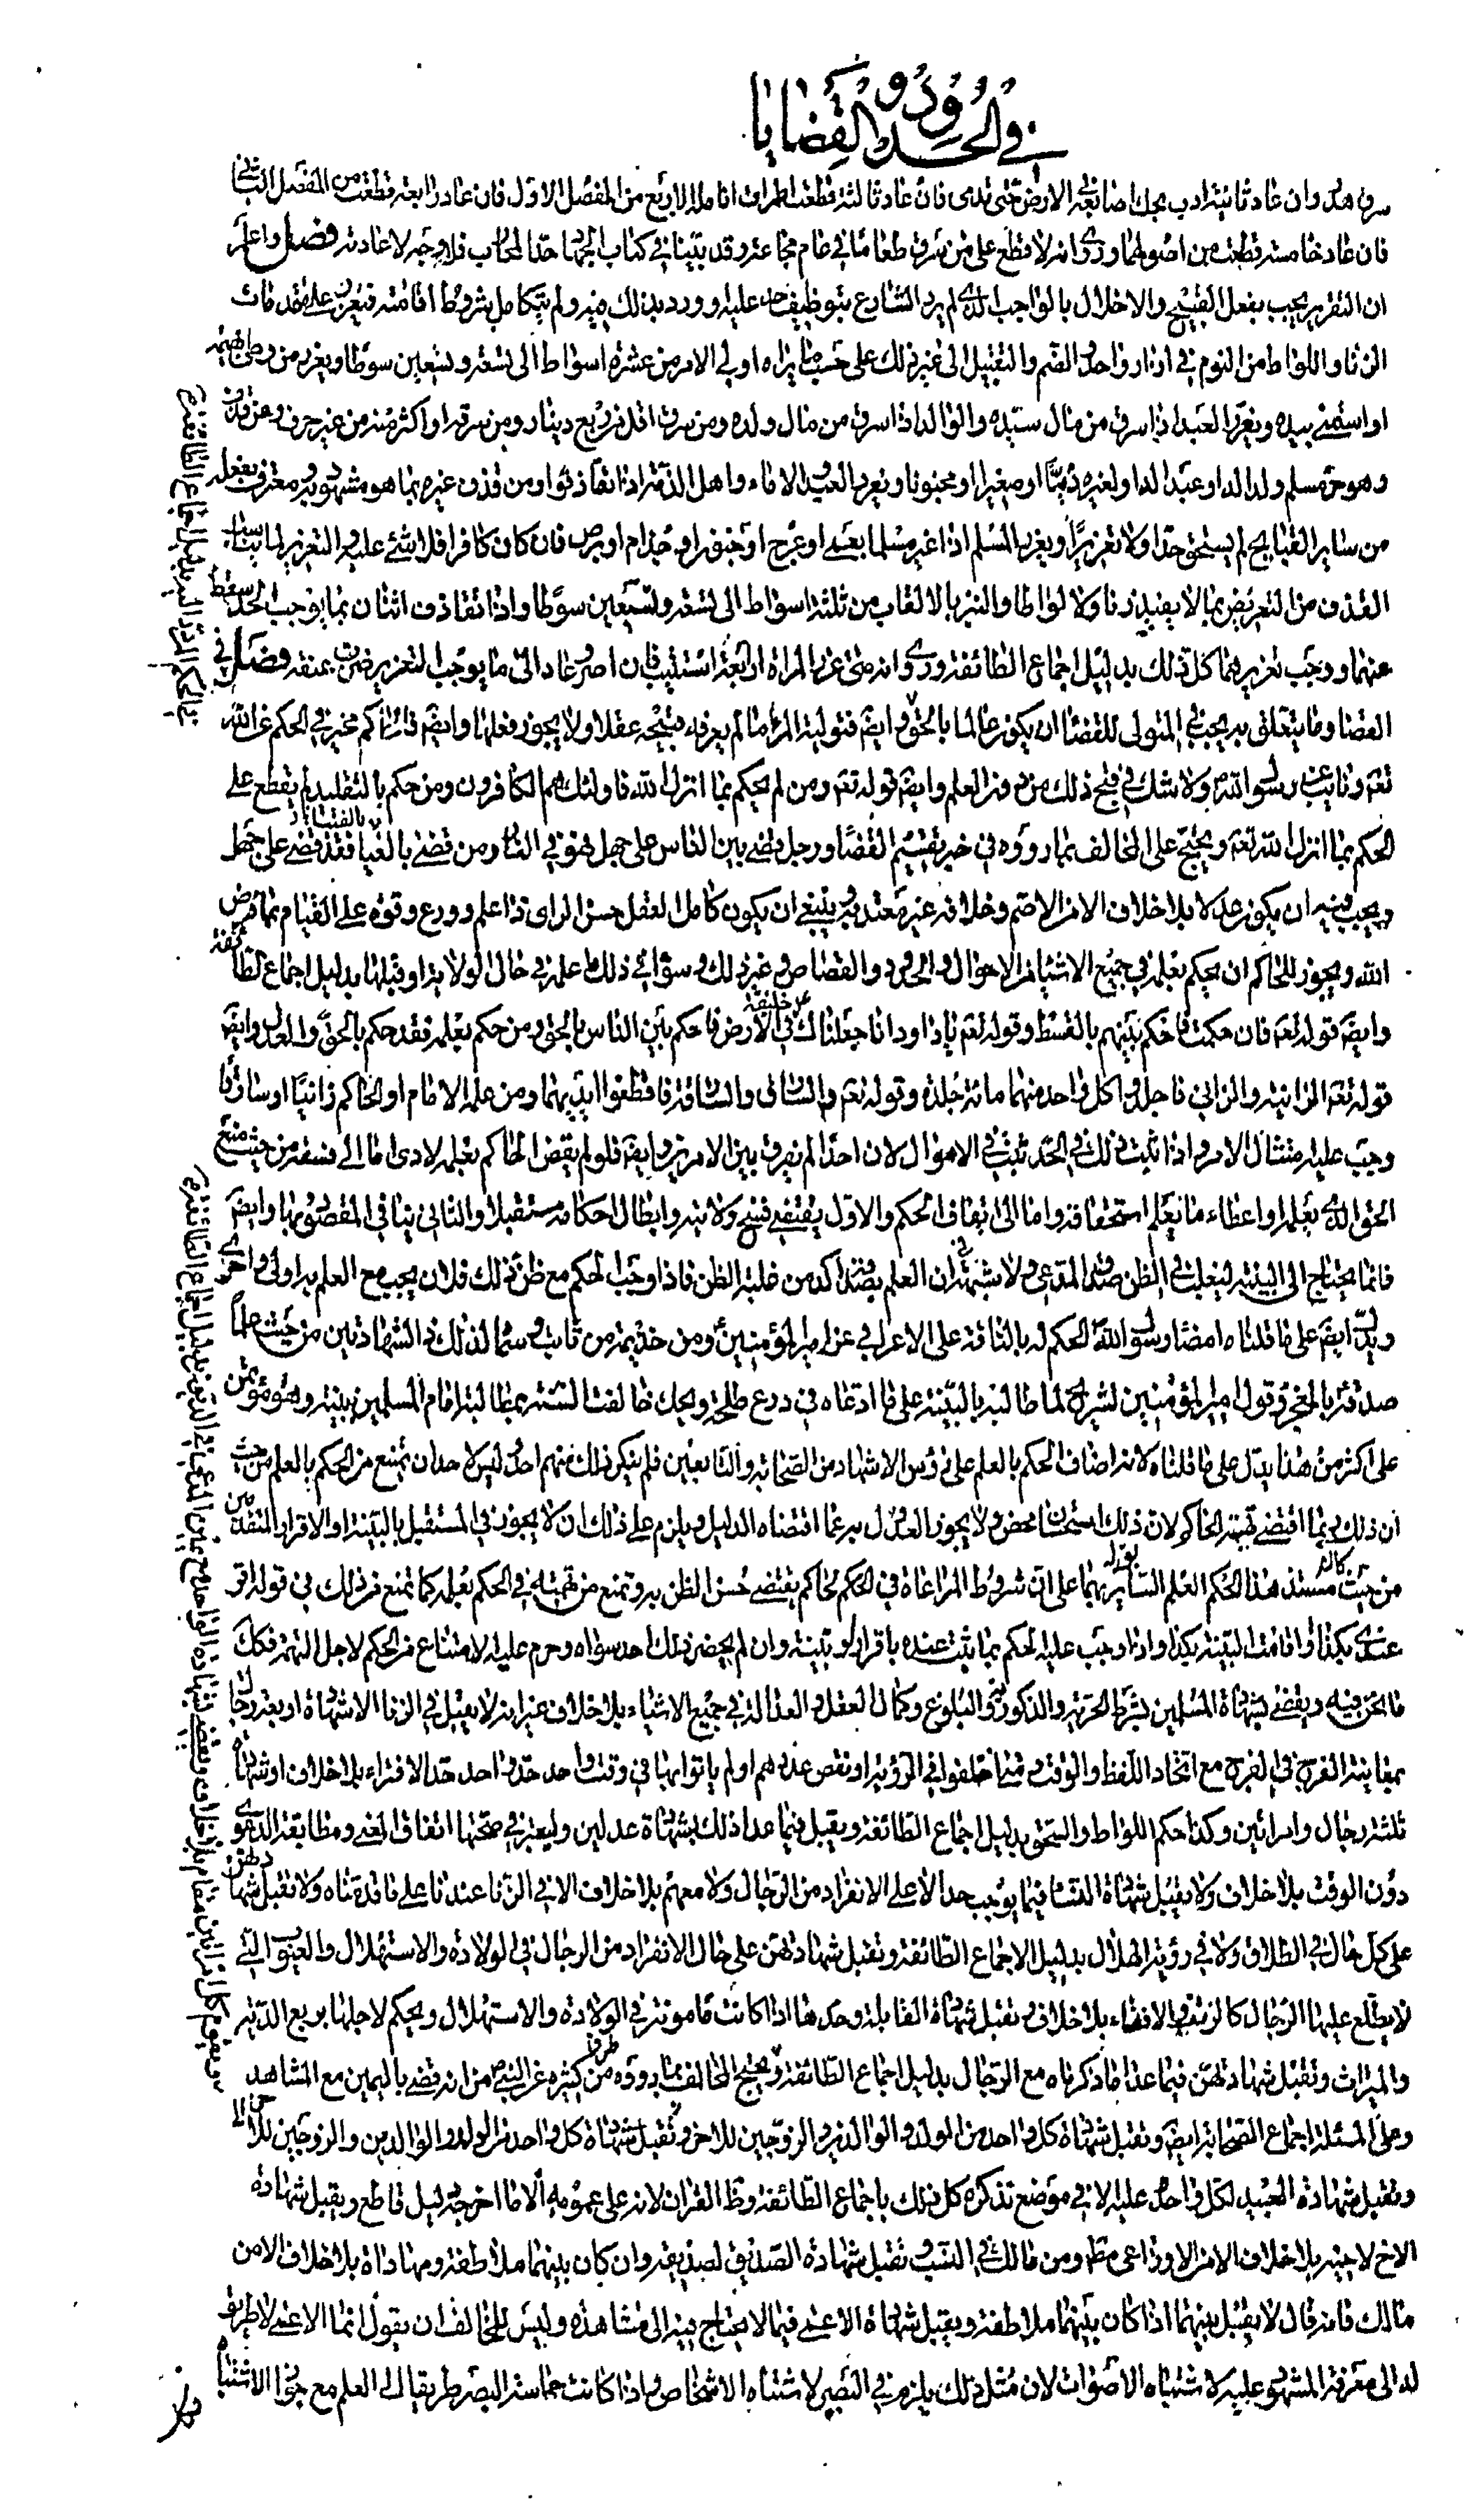 في الحدود والقضايا
سرق هدد وان عاد ثانية ادب بحك اصابعه الارض حتى تدمى فان عاد ثالثة قطعت اطراف انامله الاربع من المفصل الاول فان عاد رابعة قطعت من المفصل الثاني
فان عاد خامسة قطعت من اصولها وروى انه لا قطع على من سرق طعاما في عام مجاعة وقد بينا في كتاب الجهاد حد المحارب فلا وجه لاعادته فصل واعلم
ان التعزير يجب بفعل القبيح والاخلال بالواجب الذي لم يرد الشارع بتوظيف حد عليه او ورد بذلك فيه ولم يتكامل شروط اقامته فيعزر على مقدمات
الزنا واللواط من النوم في ازار واحد والضم والتقبيل الى غير ذلك على حسب ما يراه اولي الامر من عشرة اسواط الى تسعة وتسعين سوطا ويعزر من وطئ بهيمة
او استمنى بيده ويعزر العبد اذا سرق من مال سيده والوالد اذا سرق من مال ولده ومن سرق اقل من ربع دينار ومن سرقه او اكثر منه من غير حرز ومن قذف
وهو حر مسلم ولدا له او عبدا له او لغيره او ذميا او صغيرا او مجنونا ويعزر العبيد والاماء واهل الذمة اذا تقاذفوا ومن قذف غيره بما هو مشهور به ومعترف بفعله
من ساير القبايح لم يستحق حدا ولا تعزيرا ويعزر المسلم اذا عير مسلما بعمى او عرج او جنون او جذام او برص فان كان كافرا فلا شيء عليه والتعزير لما يناسب
القذف من التعريض بما لا يفيد زنا ولا لواطا والنبز بالالقاب من ثلثة اسواط الى تسعة وتسعين سوطا واذا تقاذف اثنان بما يوجب الحد سقط
عنهما ووجب تعزيرهما كل ذلك بدليل اجماع الطائفة وروى انه متى عزر المراة اربعة استتيب فان اصر وعاد الى ما يوجب التعزير ضربت عنقه فصل في
القضا وما يتعلق به يجب في المتولى للقضا ان يكون عالما بالحق وايضم فتولية المرء ما لم يعرفه قبيحة عقلا ولا يجوز فعلها وايضم فالحاكم مخبر في الحكم عن الله
تعم ونايب عن رسول الله ص ولا شك في قبح ذلك من دون العلم وايضم قوله تعم ومن لم يحكم بما انزل الله فاولئك هم الكافرون ومن حكم بالتقليد لم يقطع على
الحكم بما انزل الله تعم ويحتج على المخالف بما رووه في خبر تقسيم القضاة ورجل قضى بين الناس على جهل فهو في النار ومن قضى بالفتيا فقد قضى على جهل
ويجب فيه ان يكون عدلا بلا خلاف الا من الاصم وخلافه غير معتد به وينبغي ان يكون كامل العقل حسن الراى ذا علم وورع وقوة على القيام بما فوض
الله ويجوز للحاكم ان يحكم بعلمه في جميع الاشياء من الاموال والحدود والقصاص وغير ذلك وسواء في ذلك ما علمه في حال الولاية او قبلها بدليل اجماع الطائفة
وايضم قوله تعم فان حكمت فاحكم بينهم بالقسط وقوله تعم يا داود انا جعلناك خليفة في الارض فاحكم بين الناس بالحق ومن حكم بعلمه فقد حكم بالحق والعدل وايضم
قوله تعم الزانية والزاني فاجلدوا كل واحد منهما مائة جلدة وقوله تعم والسارق والسارقة فاقطعوا ايديهما ومن علمه الامام او الحاكم زانيا او سارقا
وجب عليه امتثال الامر واذا ثبت ذلك في الحد ثبت في الاموال لان احدا لم يفرق بين الامرين وايضم فلو لم يقض الحاكم بعلمه لادى اما الى فسقه من حيث منع
الحق الذي يعلمه او اعطاء ما لم يعلم استحقاقه واما الى ايقاف الحكم والاول يقتضى فسخ ولايته وابطال احكامه مستقبلا والثاني ينافي المقصود بها وايضم
فانما يحتاج الى البينة ليغلب في الظن صدق المدعى ولا شبهة في ان العلم بصدقه اكد من غلبة الظن فاذا وجب الحكم مع ظن ذلك فلان يجب مع العلم به اولى واحرى
ويدل ايضم على ما قلناه امضا رسول الله الحكم له بالناقة على الاعرابي عن امير المؤمنين ع ومن خزيمة من ثابت وسماه لذلك ذا الشهادتين من حيث علما
صدقه بالمعجز وقول امير المؤمنين لشريح لما طالبه بالبينة على ما ادعاه في درع طلحة ويحك خالفت السنة بمطالبة امام المسلمين ببينة وهو مؤتمن
على اكثر من هذا يدل على ما قلناه لانه اضاف الحكم بالعلم على رؤس الاشهاد من الصحابة والتابعين فلم ينكر ذلك منهم احد وليس لاحد ان يمنع من الحكم بالعلم من حيث
ان ذلك ربما اقتضى تهمة الحاكم لان ذلك استحسان محض ولا يجوز العدول به عما اقتضاه الدليل ويلزم على ذلك ان لا يجوز في المستقبل بالبينة او الاقرار المتقدمين
من حيث كان مستند هذا الحكم العلم السابر بهما على ان شروط المراعاة في الحكم لحاكم يقتضى حسن الظن به وتمنع من تهمته في الحكم بعلمه كما تمنع من ذلك في قوله اقر
عندي بكذا واقامت البينة بكذا واذا وجب عليه الحكم بما يثبت عنده باقرار او بينة وان لم يحضر ذلك احد سواه وحرم عليه الامتناع من الحكم لاجل التهمة فكك
ما نحن فيه ويقضى بشهادة المسلمين بشرط الحرية والذكورية والبلوغ وكمال العقل والعدالة في جميع الاشياء بلا خلاف غير انه لا يقبل في الزنا الا شهادة اربعة رجال
بمعاينة الفرج في الفرج مع اتحاد اللفظ والوقت ومتى اختلفوا في الرؤية او نقص عددهم او لم ياتوا بها في وقت واحد حدوا حد الافتراء بلا خلاف او شهادة
ثلثة رجال وامراتين وكذا حكم اللواط والسحق بدليل اجماع الطائفة ويقبل فيما عدا ذلك شهادة عدلين وليعتبر في صحتها اتفاق المعنى ومطابقة الدعوى
دون الوقت بلا خلاف ولا يقبل شهادة النساء فيما يوجب حدا لا على الانفراد من الرجال ولا معهم بلا خلاف الا في الزنا عندنا على ما قدمناه ولا تقبل شهادتهن
على كل حال في الطلاق ولا في رؤية الهلال بدليل الاجماع الطائفة وتقبل شهادتهن على حال الانفراد من الرجال في الولادة والاستهلال والعيوب التي
لا يطلع عليها الرجال كالرتق والافضاء بلا خلاف وتقبل شهادة القابلة وحدها اذا كانت مامونة في الولادة والاستهلال ويحكم لاجلها بربع الدية
والميراث وتقبل شهادتهن فيما عدا ما ذكرناه مع الرجال بدليل اجماع الطائفة ويحتج المخالف بما رووه من طرق كثيرة عن النبي ص من انه قضى باليمين مع الشاهد
وعلى المسئلة اجماع الصحابة ايضم وتقبل شهادة كل واحد من الولد والوالدين والزوجين للاخر وتقبل شهادة كل واحد من الولد والوالدين والزوجين للاخر
وتقبل شهادة العبيد لكل واحد وعليه الا في موضع نذكره كل ذلك باجماع الطائفة وظ القران لانه على عمومه الا ما اخرجه دليل قاطع ويقبل شهادة
الاخ لاخيه بلا خلاف الا من الاوزاعى مط ومن مالك في النسب وتقبل شهادة الصديق لصديقه وان كان بينهما ملاطفة ومهاداة بلا خلاف الا من
مالك فانه قال لا يقبل بينهما اذا كان بينهما ملاطفة ويقبل شهادة الاعمى فيما لا يحتاج فيه الى مشاهدة وليس للمخالف ان يقول انما الاعمى لا طريق
له الى معرفة المشهود عليه لاشتباه الاصوات لان مثل ذلك يلزم في البصير لاشتباه الاشخاص واذا كانت حاسة البصر طريقا الى العلم مع جواز الاشتباه
ويقضى بشهادة الواحد مع يمين المدعى في الديون بدليل اجماع الطائفة